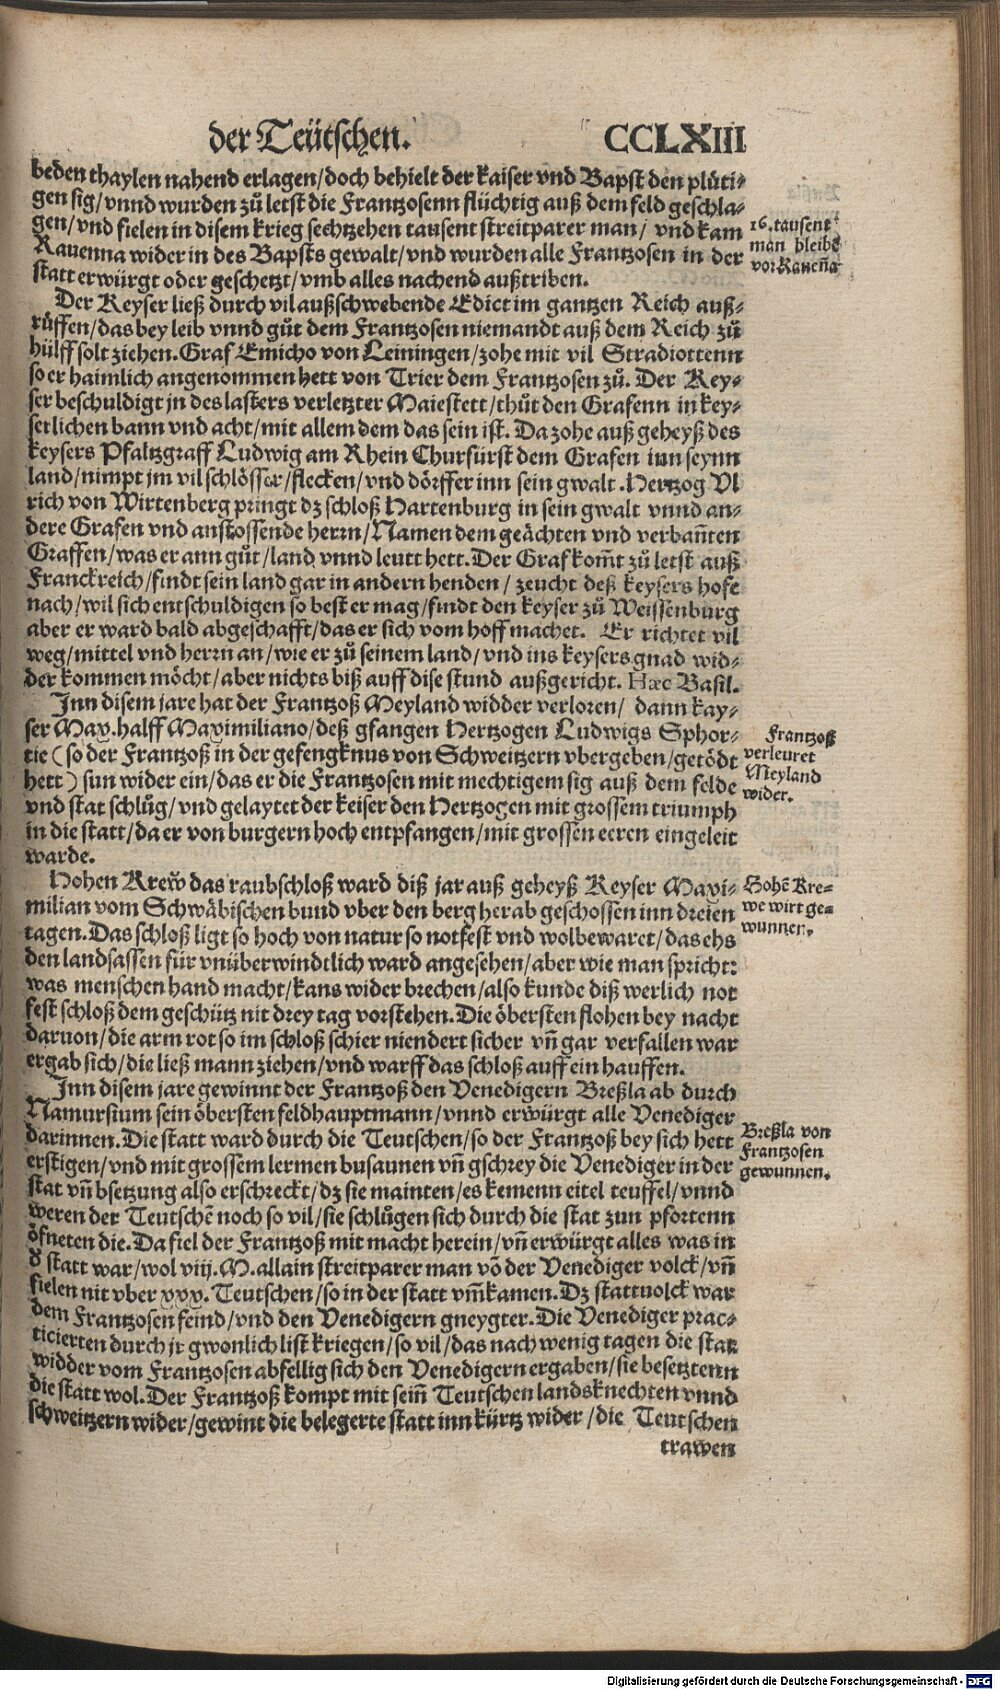 der Teütschen.
CCLXIII
beden thaylen nahend erlagen/doch behielt der kaiser vnd Bapst den plůti-
gen sig/vnnd wurden zů letst die Frantzosenn flüchtig auß dem feld geschla-
gen/vnd fielen in disem krieg sechtzehen tausent streitparer man/ vnd kam
Rauenna wider in des Bapsts gewalt/vnd wurden alle Frantzosen in der
statt erwürgt oder geschetzt/vmb alles nachend außtriben.
16. tausent
man bleibẽ
vor Raueña
Der Keyser ließ durch vil außschwebende Edict im gantzen Reich auß-
rüffen/das bey leib vnnd gůt dem Frantzosen niemandt auß dem Reich zů
hülff solt ziehen. Graf Emicho von Leiningen/zohe mit vil Stradiottenn
so er haimlich angenommen hett von Trier dem Frantzosen zů. Der Key-
ser beschuldigt jn des lasters verletzter Maiestett/thůt den Grafenn in key-
serlichen bann vnd acht/mit allem dem das sein ist. Da zohe auß geheyß des
keysers Pfaltzgraff Ludwig am Rhein Churfürst dem Grafen inn seynn
land/nimpt jm vil schlösser/flecken/vnd dörffer inn sein gwalt. Hertzog Vl
rich von Wirtenberg pringt dz schloß Hartenburg in sein gwalt vnnd an-
dere Grafen vnd anstossende herrn/Namen dem geächten vnd verbañten
Graffen/was er ann gůt/land vnnd leutt hett. Der Graf kom̃t zů letst auß
Franckreich/findt sein land gar in andern henden/ zeucht deß keysers hofe
nach/wil sich entschuldigen so best er mag/findt den keyser zů Weissenburg
aber er ward bald abgeschafft/das er sich vom hoff machet. Er richtet vil
weg/mittel vnd herrn an/wie er zů seinem land/vnd ins keysers gnad wid-
der kommen möcht/aber nichts biß auff dise stund außgericht. Hæc Basil.
Inn disem jare hat der Frantzoß Meyland widder verloren/ dann kay-
ser Max. halff Maximiliano/deß gfangen Hertzogen Ludwigs Sphor-
tie (so der Frantzoß in der gefengknus von Schweitzern vbergeben/getödt
hett) sun wider ein/das er die Frantzosen mit mechtigem sig auß dem felde
vnd stat schlůg/vnd gelaytet der keiser den Hertzogen mit grossem triumph
in die statt/da er von burgern hoch entpfangen/mit grossen eeren eingeleit
warde.
Frantzoß
verleuret
Meyland
wider.
Hohen Krew̃ das raubschloß ward diß jar auß geheyß Keyser Maxi-
milian vom Schwäbischen bund vber den berg herab geschossen inn dreien
tagen. Das schloß ligt so hoch von natur so notfest vnd wolbewaret/das ehs
den landsassen für vnüberwindtlich ward angesehen/aber wie man spricht:
was menschen hand macht/kans wider brechen/also kunde diß werlich not
fest schloß dem geschütz nit drey tag vorstehen. Die öbersten flohen bey nacht
daruon/die arm rot so im schloß schier niendert sicher vñ gar verfallen war
ergab sich/die ließ mann ziehen/vnd warff das schloß auff ein hauffen.
Hohẽ Kre-
we wirt ge-
wunnen.
Inn disem jare gewinnt der Frantzoß den Venedigern Breßla ab durch
Namursium sein öbersten feldhauptmann/vnnd erwürgt alle Venediger
darinnen. Die statt ward durch die Teutschen/so der Frantzoß bey sich hett
erstigen/vnd mit grossem lermen busaunen vñ gschrey die Venediger in der
stat vñ bsetzung also erschreckt/dz sie mainten/es kemenn eitel teuffel/vnnd
weren der Teutschẽ noch so vil/sie schlůgen sich durch die stat zun pfortenn
öfneten die. Da fiel der Frantzoß mit macht herein/vñ erwürgt alles was in
d statt war/wol viij. M. allain streitparer man võ der Venediger volck/vñ
fielen nit vber xxx. Teutschen/so in der statt vm̃kamen. Dz stattuolck war
dem Frantzosen feind/vnd den Venedigern gneygter. Die Venediger prac-
ticierten durch jr gwonlich list kriegen/so vil/das nach wenig tagen die stat
widder vom Frantzosen abfellig sich den Venedigern ergaben/sie besetztenn
die statt wol. Der Frantzoß kompt mit seiñ Teutschen landsknechten vnnd
schweitzern wider/gewint die belegerte statt inn kürtz wider/die Teutschen
trawen
Breßla von
Frantzosen
gewunnen.
Digitalisierung gefördert durch die Deutsche Forschungsgemeinschaft - DFG